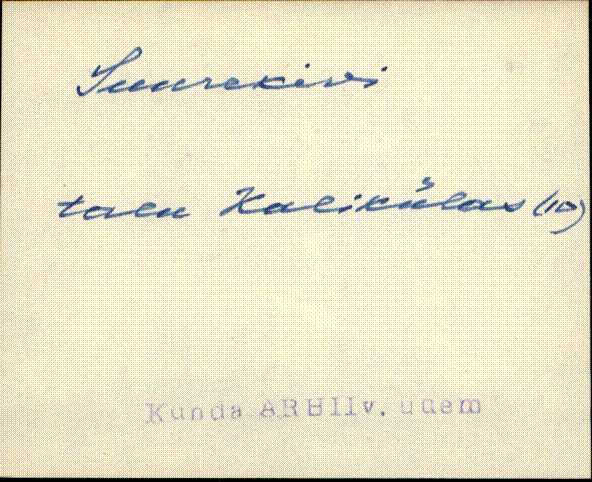 Suurekivi
talu Kalikülas (10)
Kunda ARHIIv, uuem